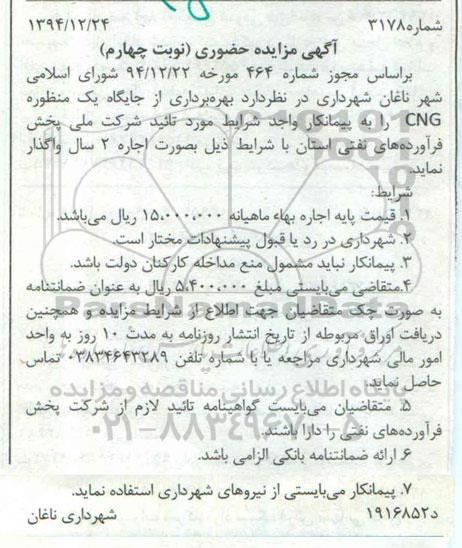 شماره ۳۱۷۸ ۱۳۹۴/۱۲/۲۴
آگهی مزایده حضوری (نوبت چهارم)
براساس مجوز شماره ۴۶۴ مورخه ۹۴/۱۲/۲۲ شورای اسلامی
شهر ناغان شهرداری در نظردارد بهره‌برداری از جایگاه یک منظوره
CNG را به پیمانکار واجد شرایط مورد تائید شرکت ملی پخش
فرآورده‌های نفتی استان با شرایط ذیل بصورت اجاره ۲ سال واگذار
نماید.
شرایط:
۱. قیمت پایه اجاره بهاء ماهیانه ۱۵،۰۰۰،۰۰۰ ریال می‌باشد.
۲. شهرداری در رد یا قبول پیشنهادات مختار است.
۳. پیمانکار نباید مشمول منع مداخله کارکنان دولت باشد.
۴.متقاضی می‌بایستی مبلغ ۵،۴۰۰،۰۰۰ ریال به عنوان ضمانتنامه
به صورت چک متقاضیان جهت اطلاع از شرایط مزایده و همچنین
دریافت اوراق مربوطه از تاریخ انتشار روزنامه به مدت ۱۰ روز به واحد
امور مالی شهرداری مراجعه یا با شماره تلفن ۰۳۸۳۴۶۴۳۲۸۹ تماس
حاصل نماید.
پایگاه اطلاع رسانی مناقصه و مزایده
۵. متقاضیان می‌بایست گواهینامه تائید لازم از شرکت پخش
فرآورده‌های نفتی را دارا باشند.
۶ ارائه ضمانتنامه بانکی الزامی باشد.
۷. پیمانکار می‌بایستی از نیروهای شهرداری استفاده نماید.
۱۹۱۶۸۵۲د شهرداری ناغان